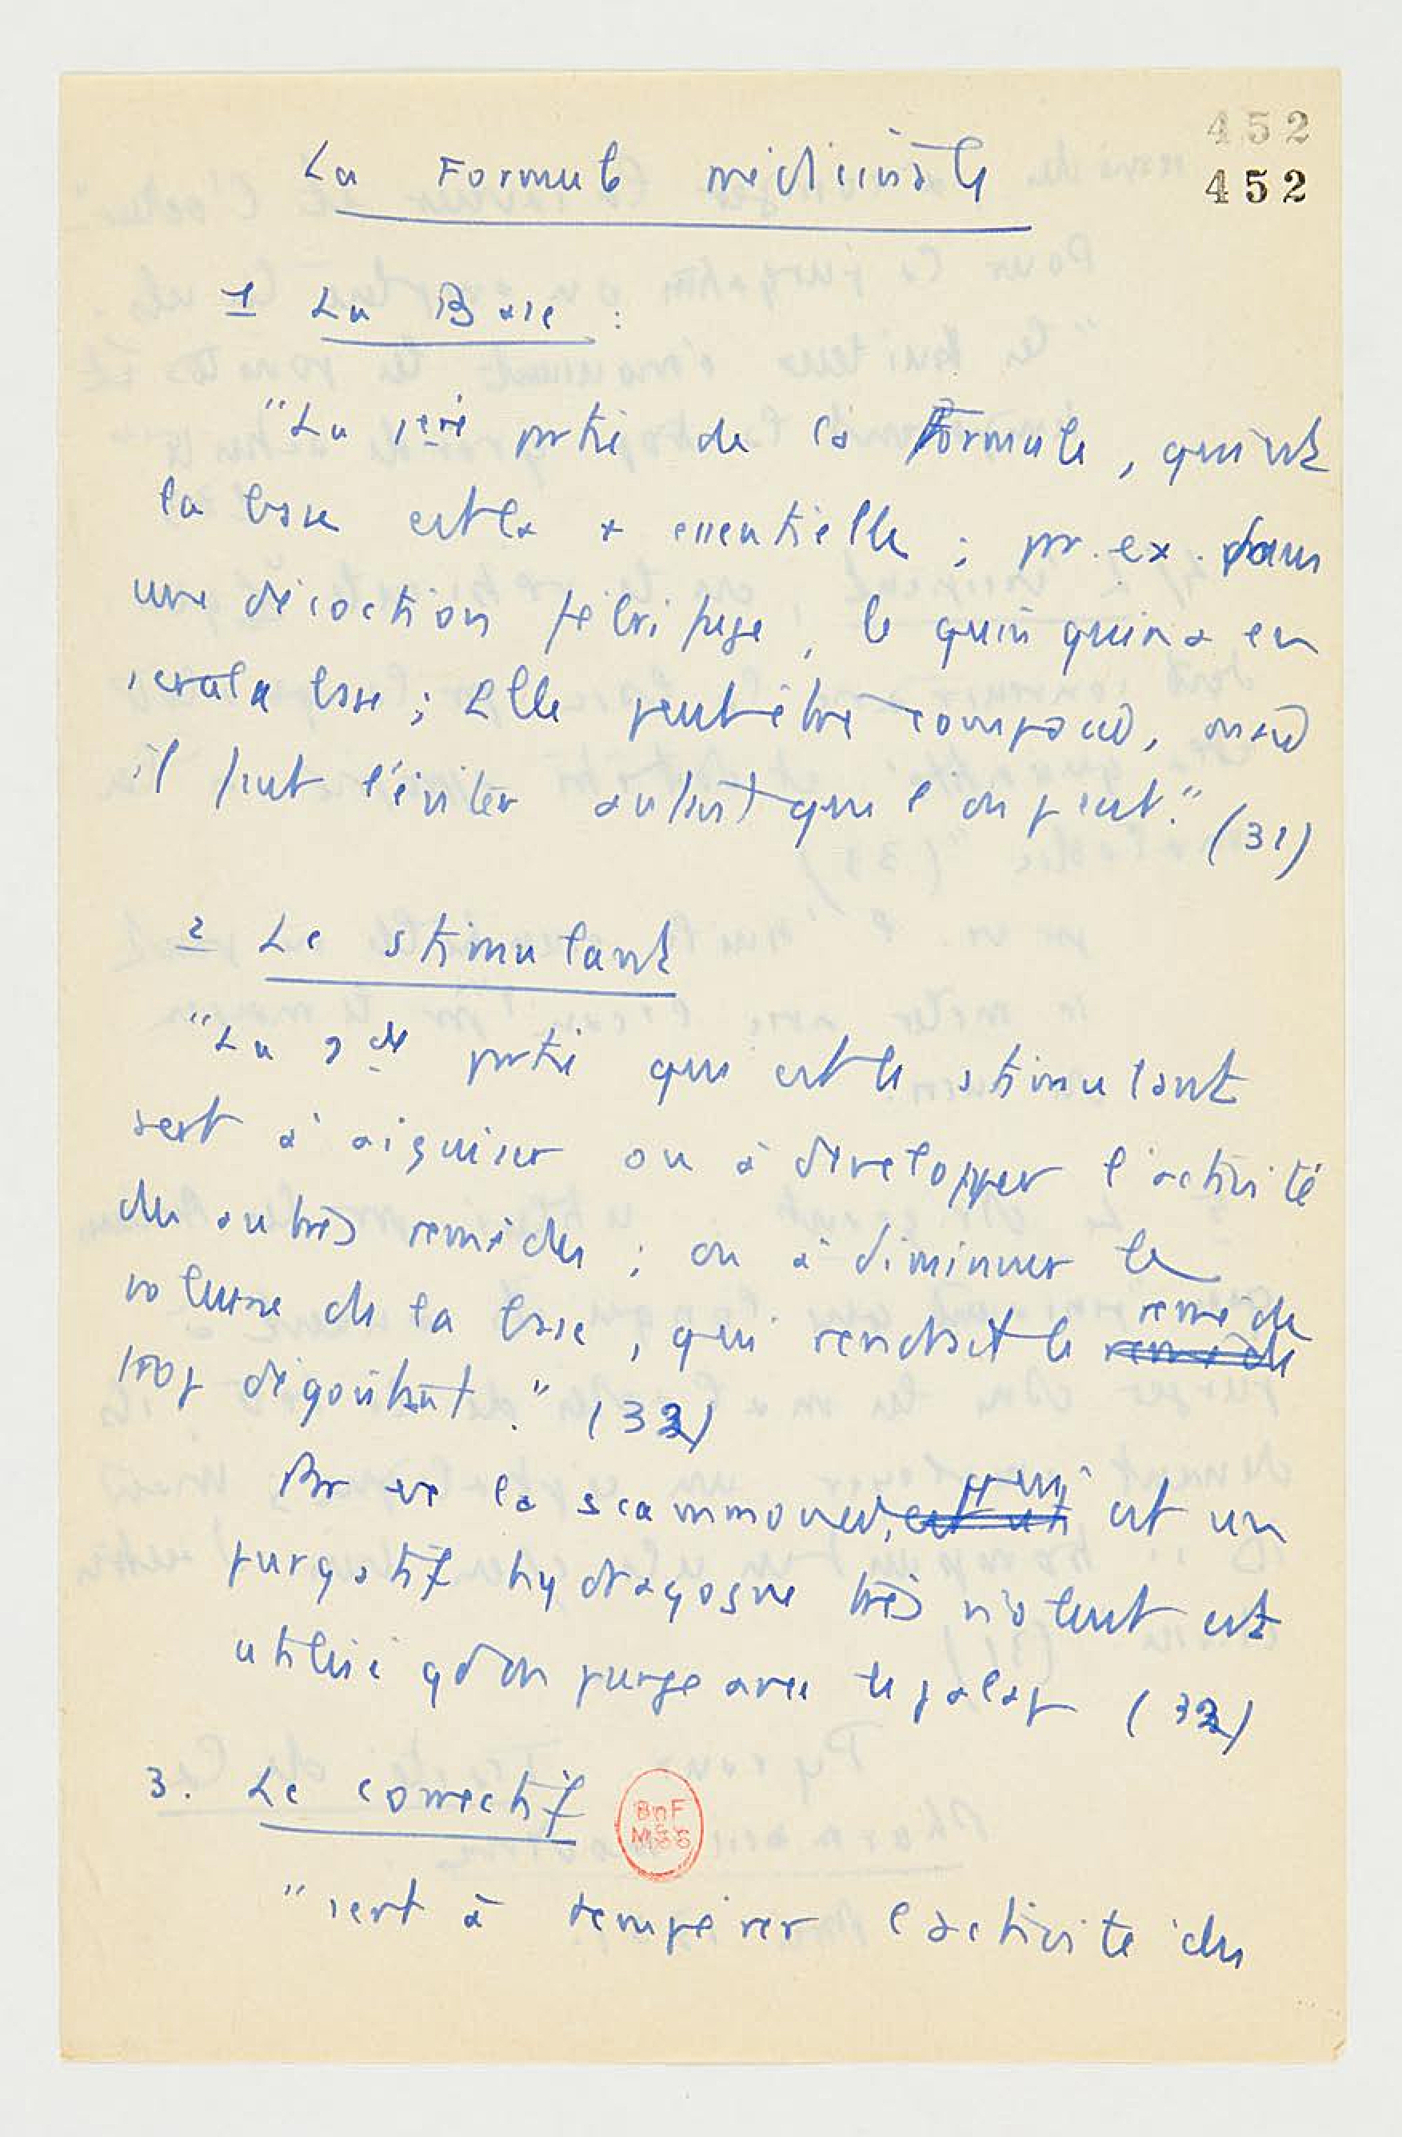 452
452
La Formule médicinale
1 La Base :
"La 1ère partie de la Formule, qui est
la base est la + essentielle ; pr. ex. dans
une décoction fébrifuge, le quinquina en
sera la base ; Elle peut être composée, mais
il faut l'éviter autant que l'on peut." (31)
2 Le stimulant
"La 2de partie qui est le stimulant
sert à aiguiser ou à développer l'activité
des autres remèdes ; ou à diminuer le
volume de la base, qui rendrait le remède remède
trop dégoûtant." (32)
Pr ex la scammonée, est un qui est un
purgatif hydragogue très violent est
utilisé qd on purge avec le jalap (32)
3. Le correctif
BnF
MSS
"sert à tempérer l'activité des